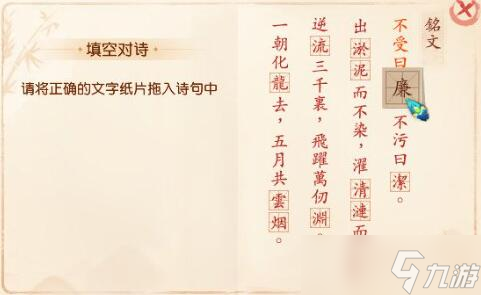 填空对诗
请将正确的文字纸片拖入诗句中
銘文
不受曰廉不污曰潔。
出淤泥而不染，濯清漣而
逆流三千裏，飛躍萬仞淵。
一朝化龍去，五月共雲烟。
九游